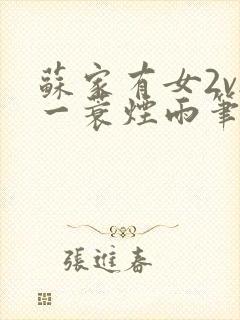 蘇家有女2v
一蓑煙雨筆
張進春